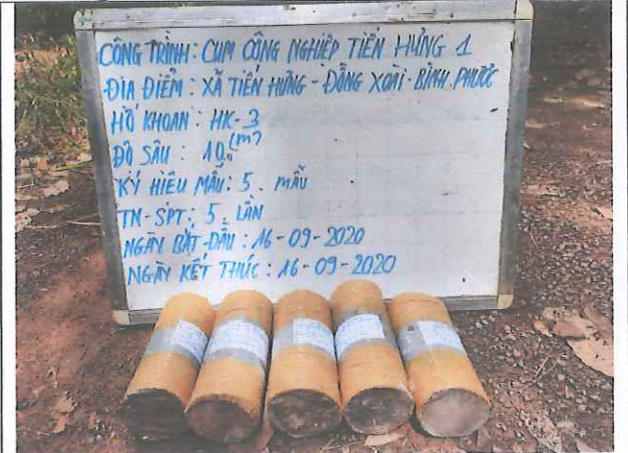 CÔNG TRÌNH: CỤM CÔNG NGHIỆP TIẾN HƯNG 1
ĐỊA ĐIỂM: XÃ TIẾN HƯNG - ĐỒNG XOÀI - BÌNH PHƯỚC
HỐ KHOAN: HK-3
ĐỘ SÂU: 10,0 (m)
KÝ HIỆU MẪU: 5. MẪU
TN-SPT: 5. LẦN
NGÀY BẮT ĐẦU: 16-09-2020
NGÀY KẾT THÚC: 16-09-2020